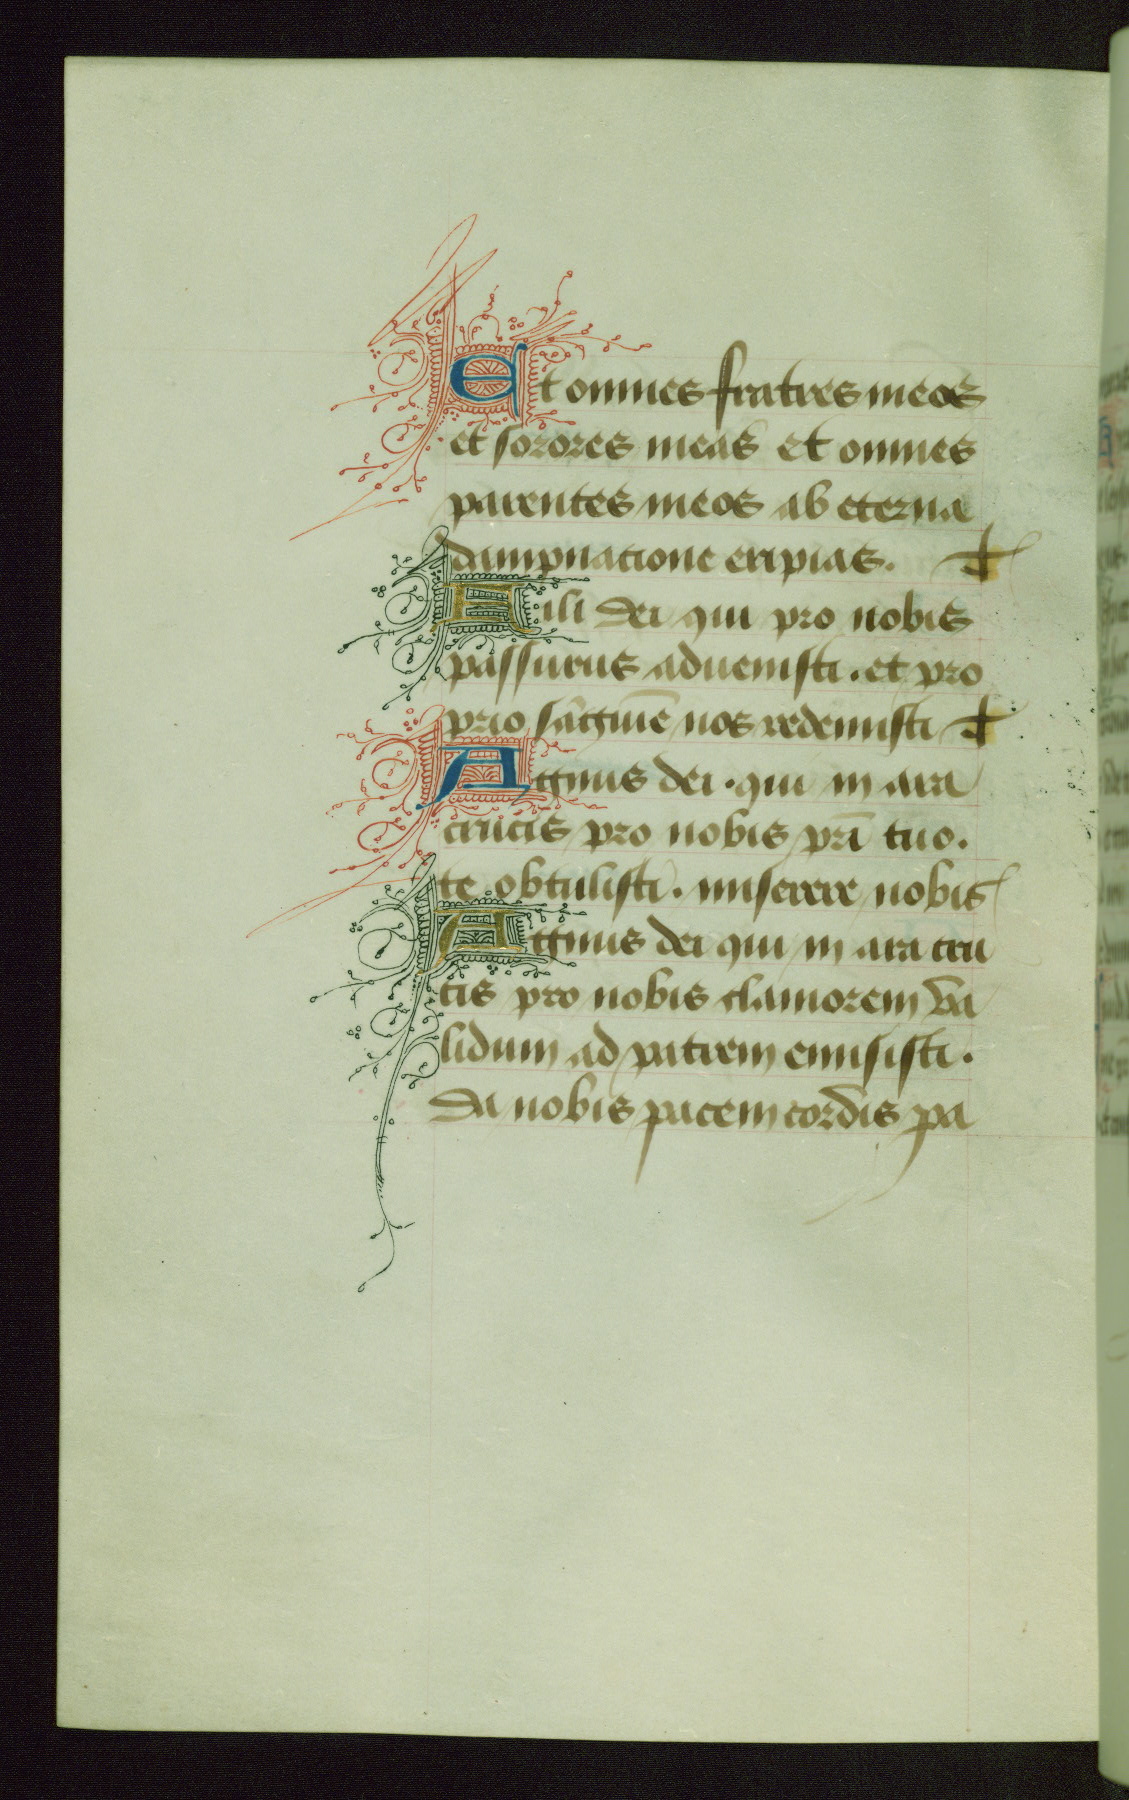 Et omnes fratres meos
et sorores meas et omnes
parentes meos ab eterna
dampnatione eripias. ✝
Fili dei qui pro nobis
passurus aduenisti. et pro
prio sāguīe nos redemisti ✝
Agnus dei. qui in ara
crucis pro nobis pr̄i tuo.
te obtulisti. miserere nobis
Agnus dei qui in ara cru
cis pro nobis clamorem va
lidum ad patrem emisisti.
Da nobis pacem cordis pa